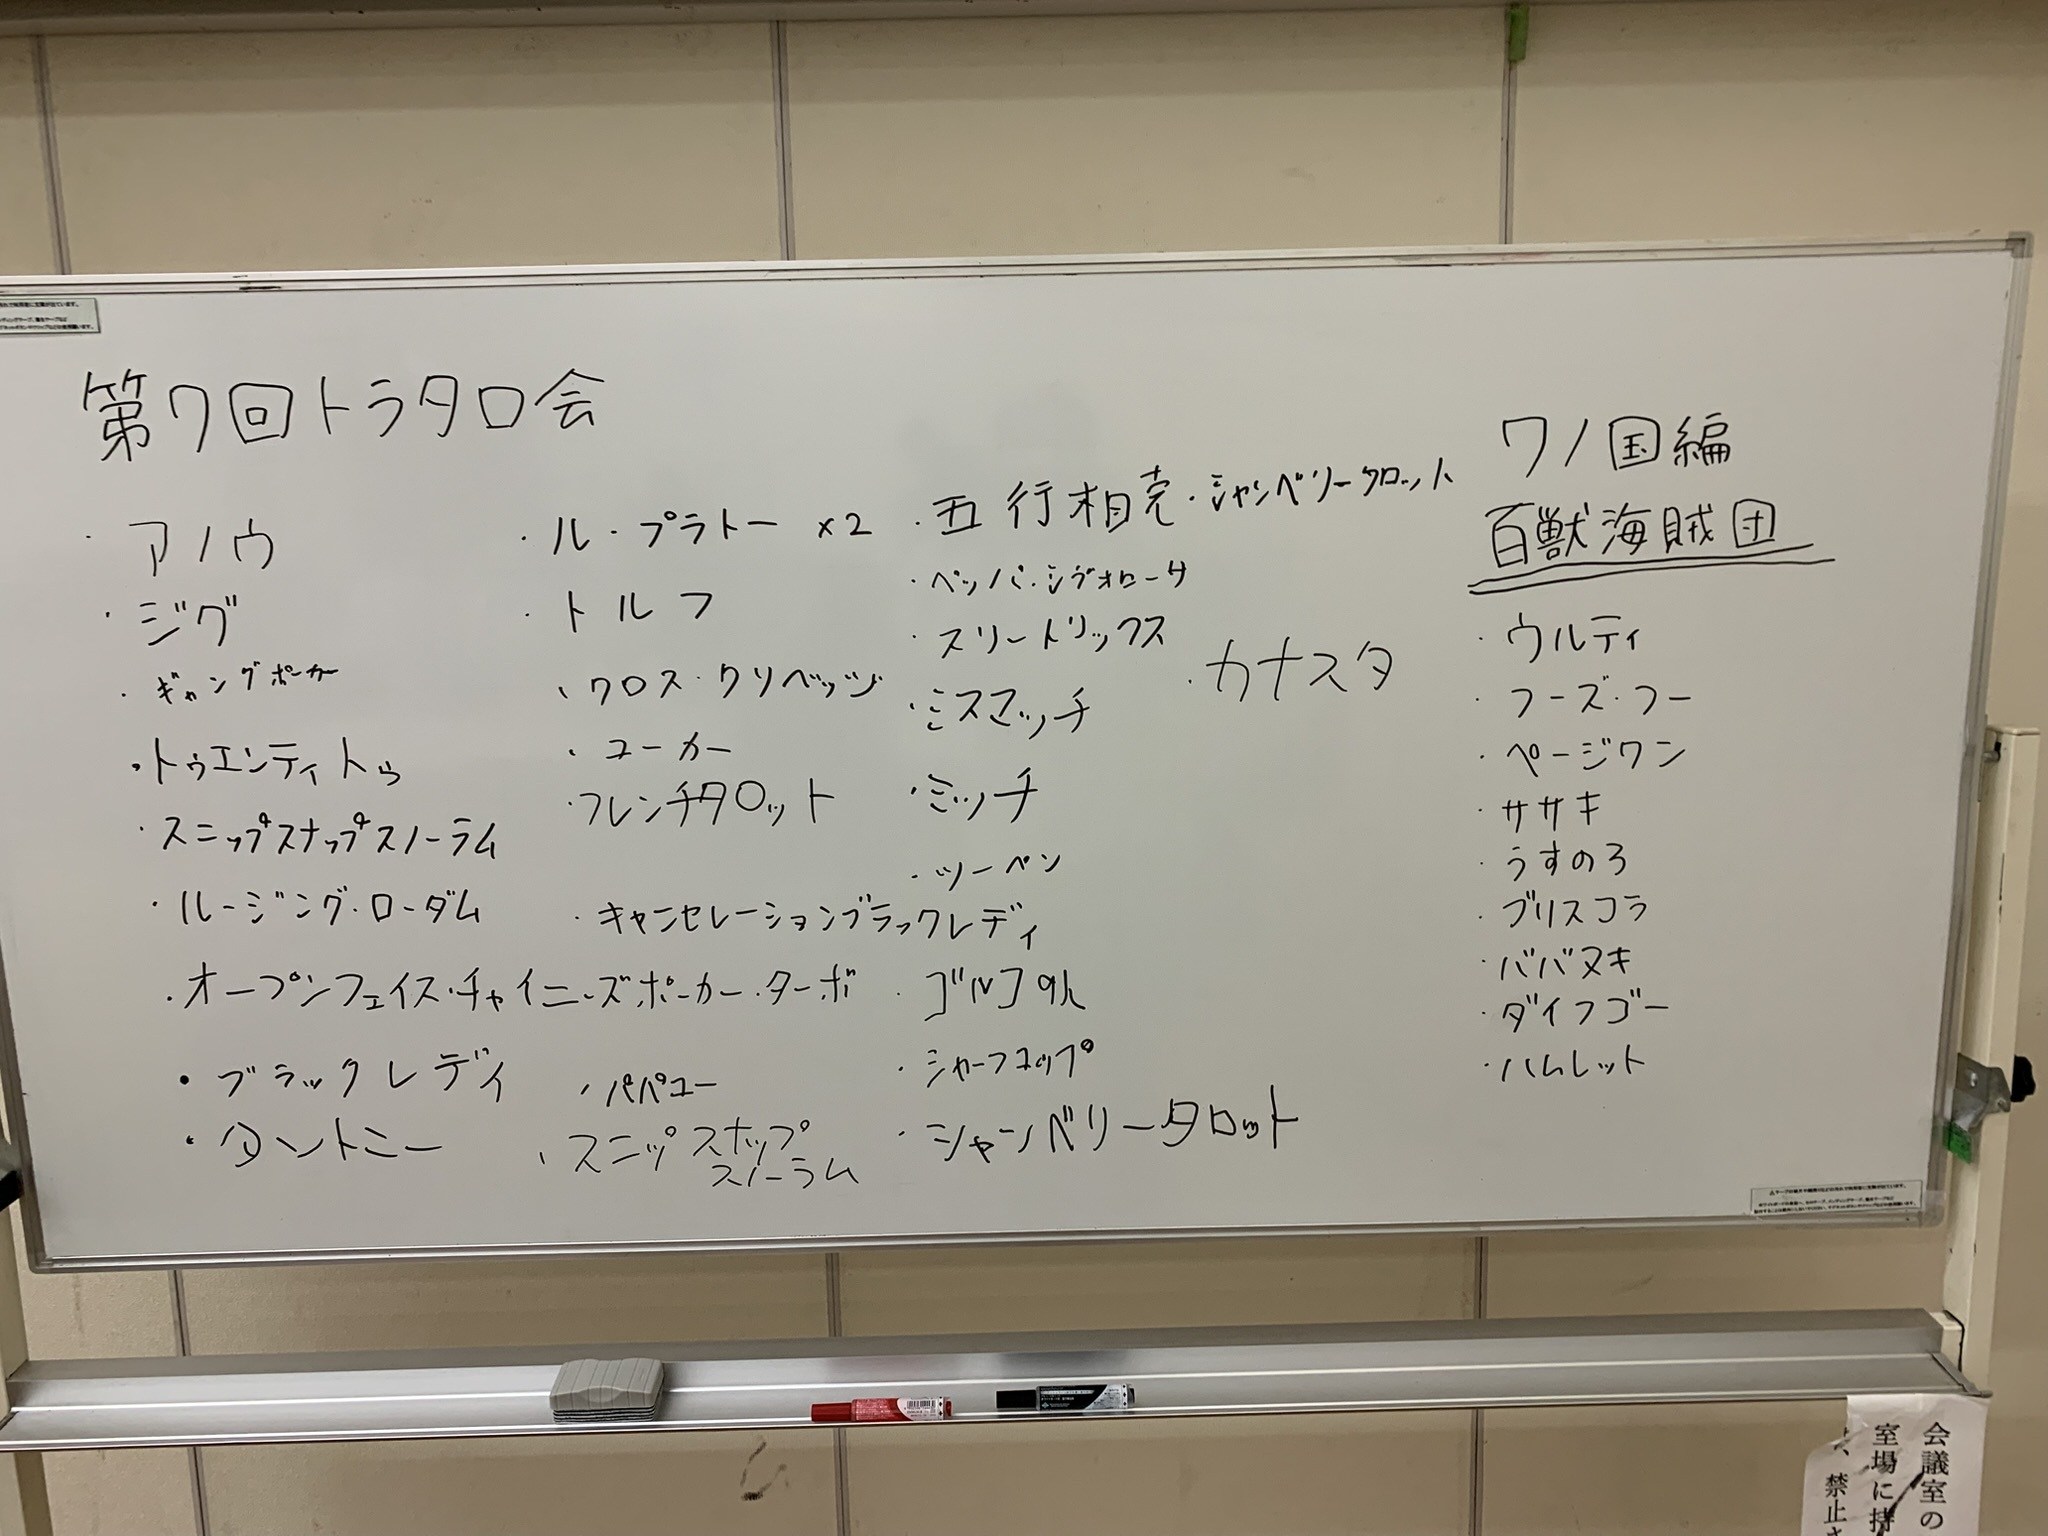 第7回トラタロ会
・アノウ
・ジグ
・ギャングポーカー
・トゥエンティトゥ
・スニップスナップスノーラム
・ルージング・ローダム
・オープンフェイス・チャイニーズポーカー・ターボ
・ブラックレディ
・タントニー
・ル・プラトー ×2
・トルフ
・クロス・クリベッジ
・ユーカー
・フレンチタロット
・キャンセレーションブラックレディ
・パパユー
・スニップスナップ
スノーラム
・五行相克
・ペッパ・シヴォローサ
・スリートリックス
・ミスマッチ
・ミッチ
・ツーペン
・ゴルフ
・シャーフコップ
・シャンベリータロット
・シャンベリータロット
・カナスタ
ワノ国編
百獣海賊団
・ウルティ
・フーズ・フー
・ページワン
・ササキ
・うすのろ
・ブリスコラ
・ババヌキ
・ダイフゴー
・ハムレット
会議室の
室場に持
禁止さ